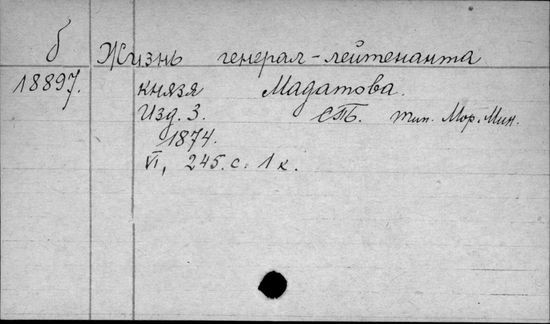 б
Жизнь генерал-лейтенанта
18897.
князя Мадатова.
Изд. 3. СПБ. тип. Мор. Мин.
1874.
VI, 245. с. 1 к.